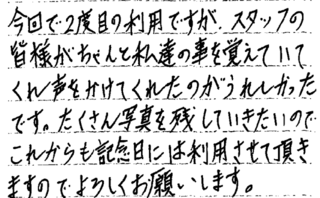 今回で2度目の利用ですが、スタッフの
皆様がちゃんと私達の事を覚えていて
くれ声をかけてくれたのがうれしかった
です。たくさん写真を残していきたいので
これからも記念日には利用させて頂き
ますのでよろしくお願いします。